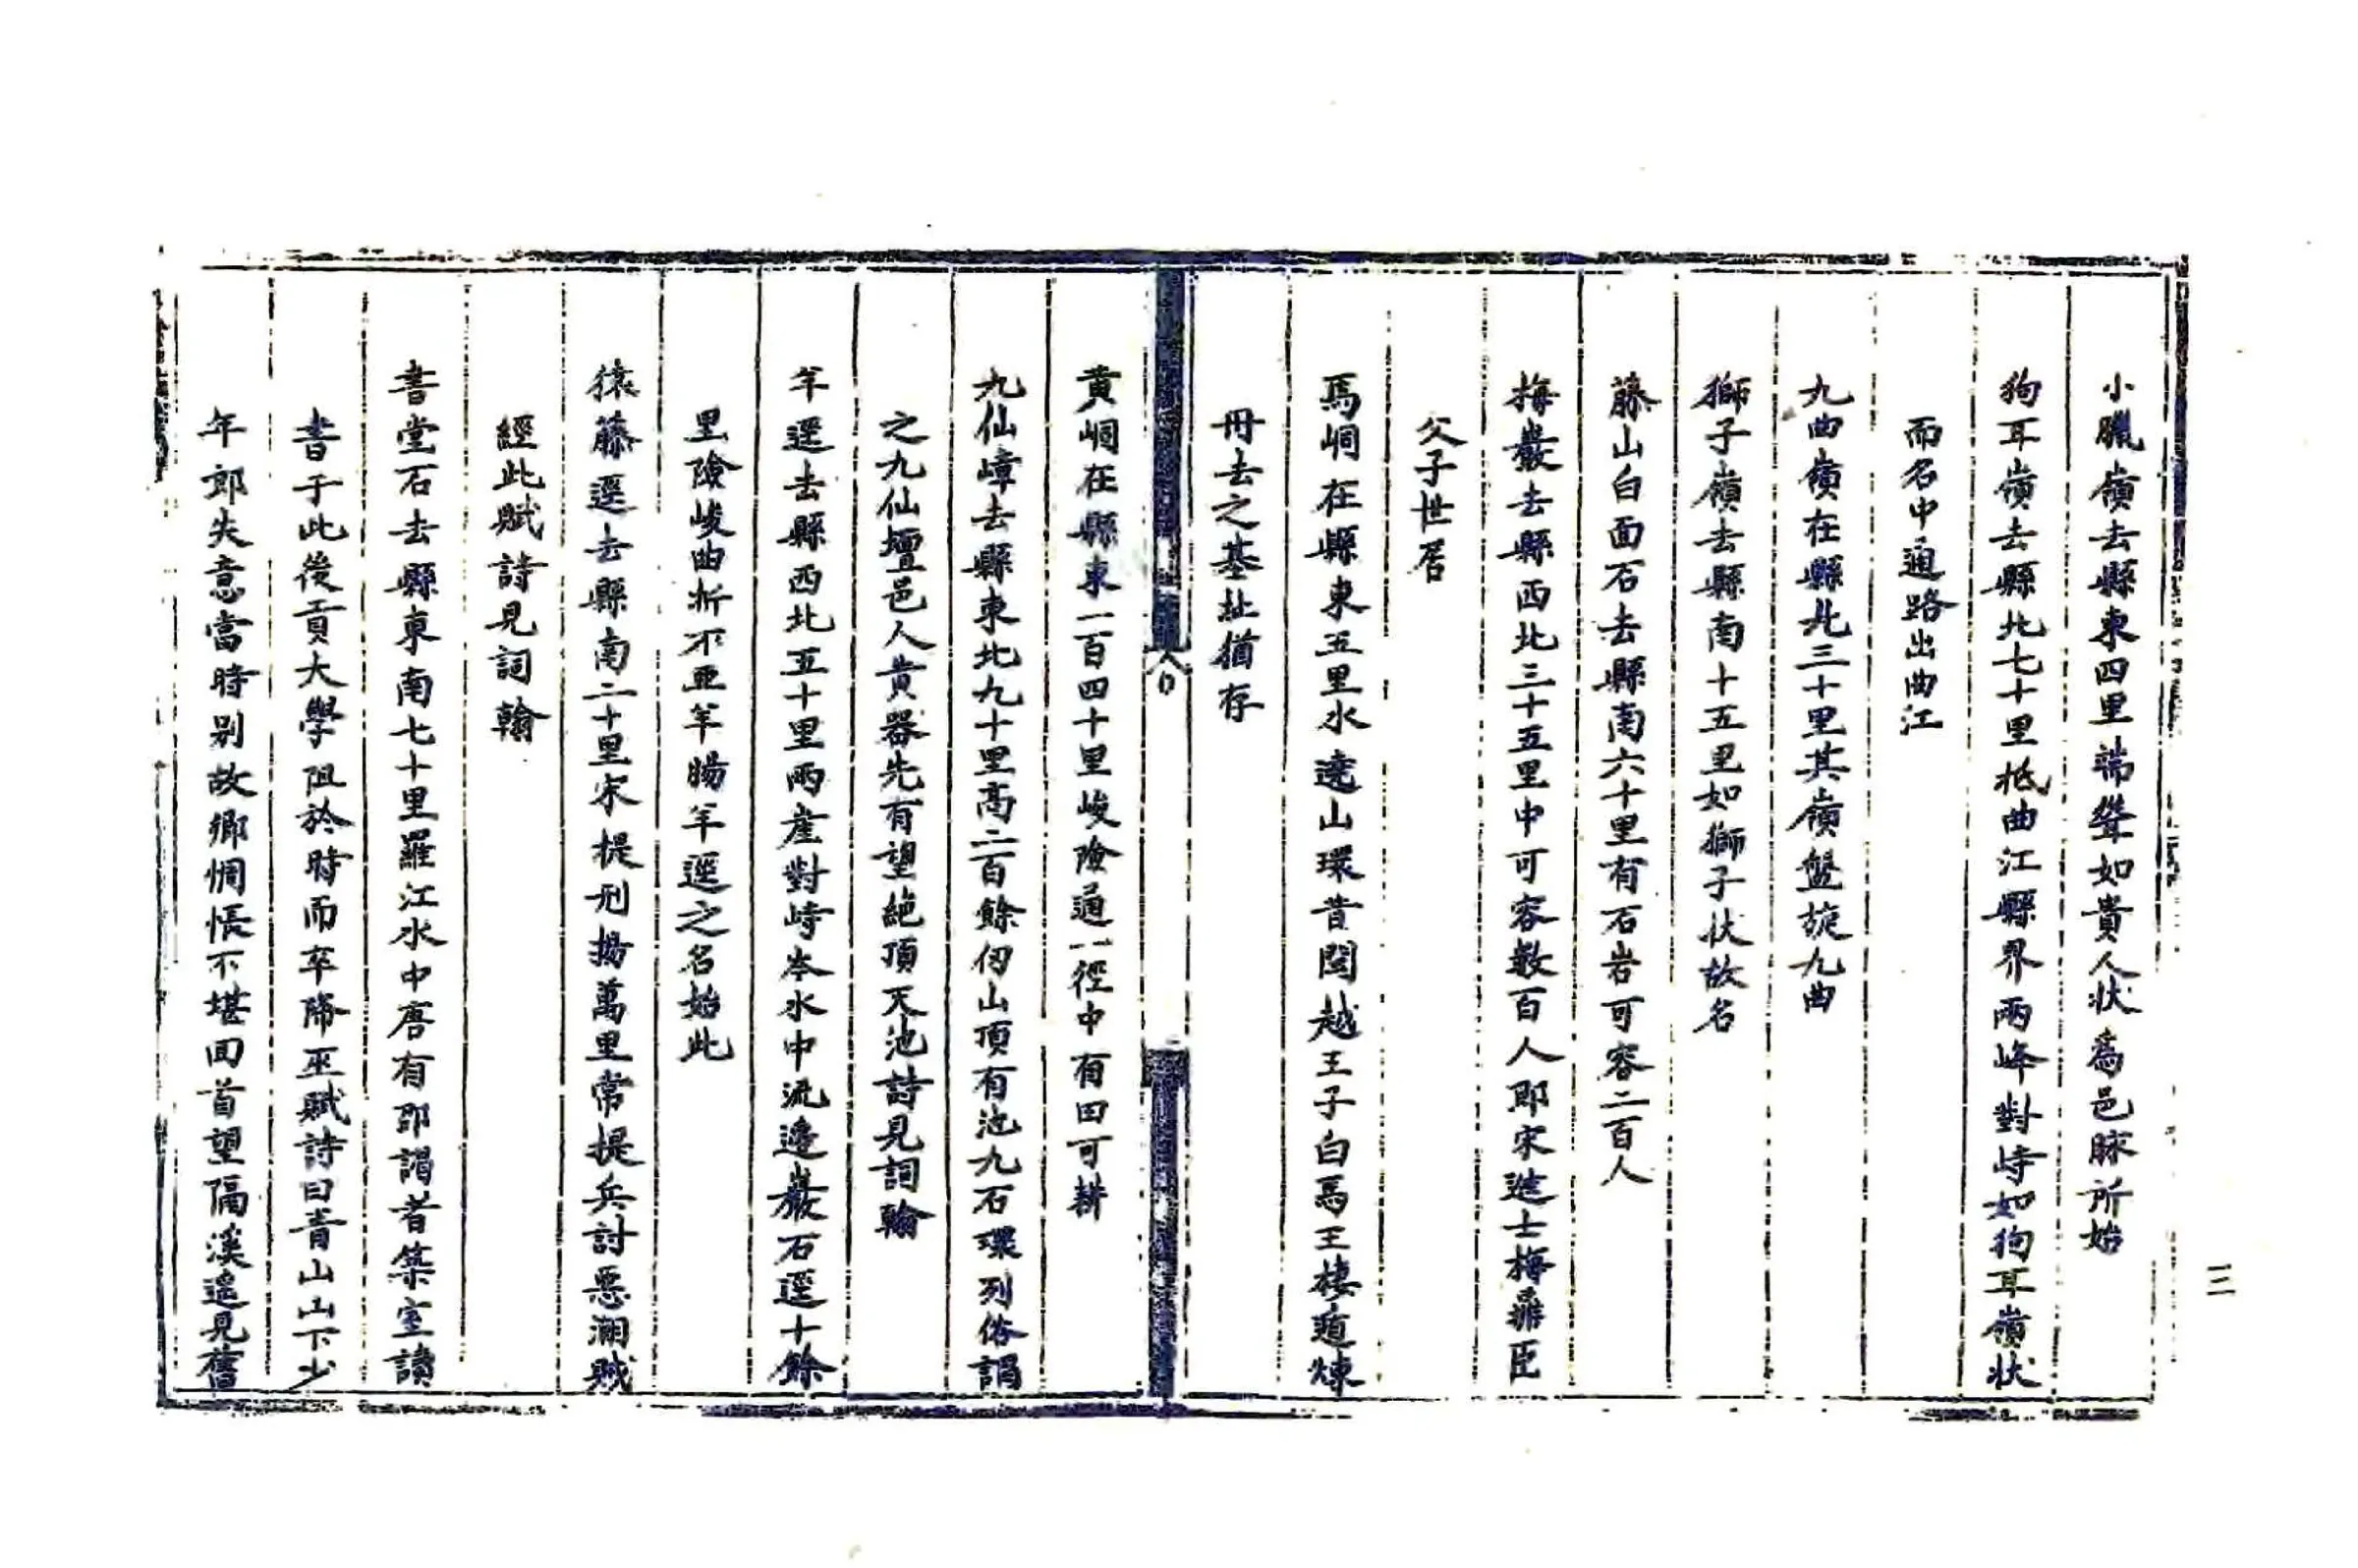 小臘嶺去縣東四里端聳如貴人狀為邑脉所始
狗耳嶺去縣北七十里抵曲江縣界兩峰對峙如狗耳嶺狀
而名中通路出曲江
九曲嶺在縣北三十里其嶺盤旋九曲
獅子嶺去縣南十五里如獅子状故名
藤山白面石去縣南六十里有石岩可容二百人
梅巖去縣西北三十五里中可容數百人即宋進士梅鼎臣
父子世居
馬峒在縣東五里水遶山環昔閩越王子白馬王棲遁煉
丹去之基址猶存
黄峒在縣東一百四十里峻險通一徑中有田可耕
九仙嶂去縣東北九十里高二百餘仞山頂有池九石環列俗謂
之九仙壇邑人黄器先有望絶頂天池詩見詞翰
羊逕去縣西北五十里兩崖對峙岑水中流邉巖石逕十餘
里險峻曲折不亞羊腸羊逕之名始此
猿藤逕去縣南二十里宋提刑揚萬里常提兵討惡溯賊
經此賦詩見詞翰
書堂石去縣東南七十里羅江水中唐有邵謁者築室讀
書于此後貢大學阻於時而卒降巫賦詩曰青山山下少
年郎失意當時别故鄉惆悵不堪回首望隔溪遙見舊
三